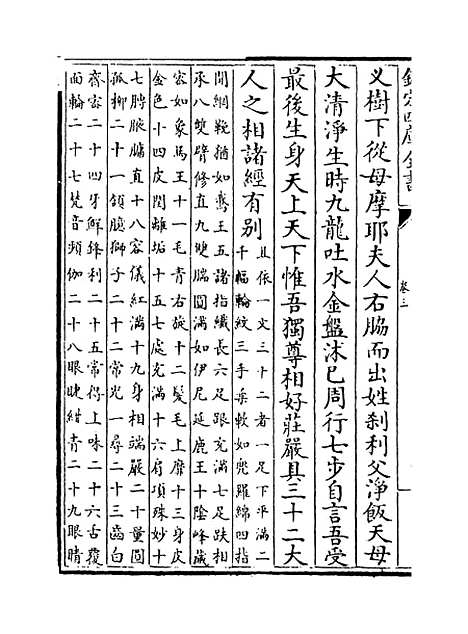 欽定四庫全書
卷三
义樹下從母摩耶夫人右脇而出姓刹利父淨飯天母
大清淨生時九龍吐水金盤沐已周行七步自言吾受
最後生身天上天下惟吾獨尊相好莊嚴具三十二大
人之相諸經有別
且依一文三十二者一足下平滿二
千輻輪紋三手柔軟如兜羅綿四指
間網鞔猶如鵞王五諸指纖長六足跟充滿七足趺相
承八雙臂修直九雙腨圓滿如伊尼延鹿王十陰峰藏
宻如象馬王十一毛青右旋十二髮毛上靡十三身皮
金色十四皮閏離垢十五七處充滿十六肩項殊妙十
七膊腋膓直十八容儀紅滿十九身相端嚴二十量圓
孤柳二十一頷臆獅子二十二常光一尋二十三齒白
齊宻二十四牙鮮鋒利二十五常得上味二十六舌覆
面輪二十七梵音頻伽二十八眼睫紺青二十九眼睛